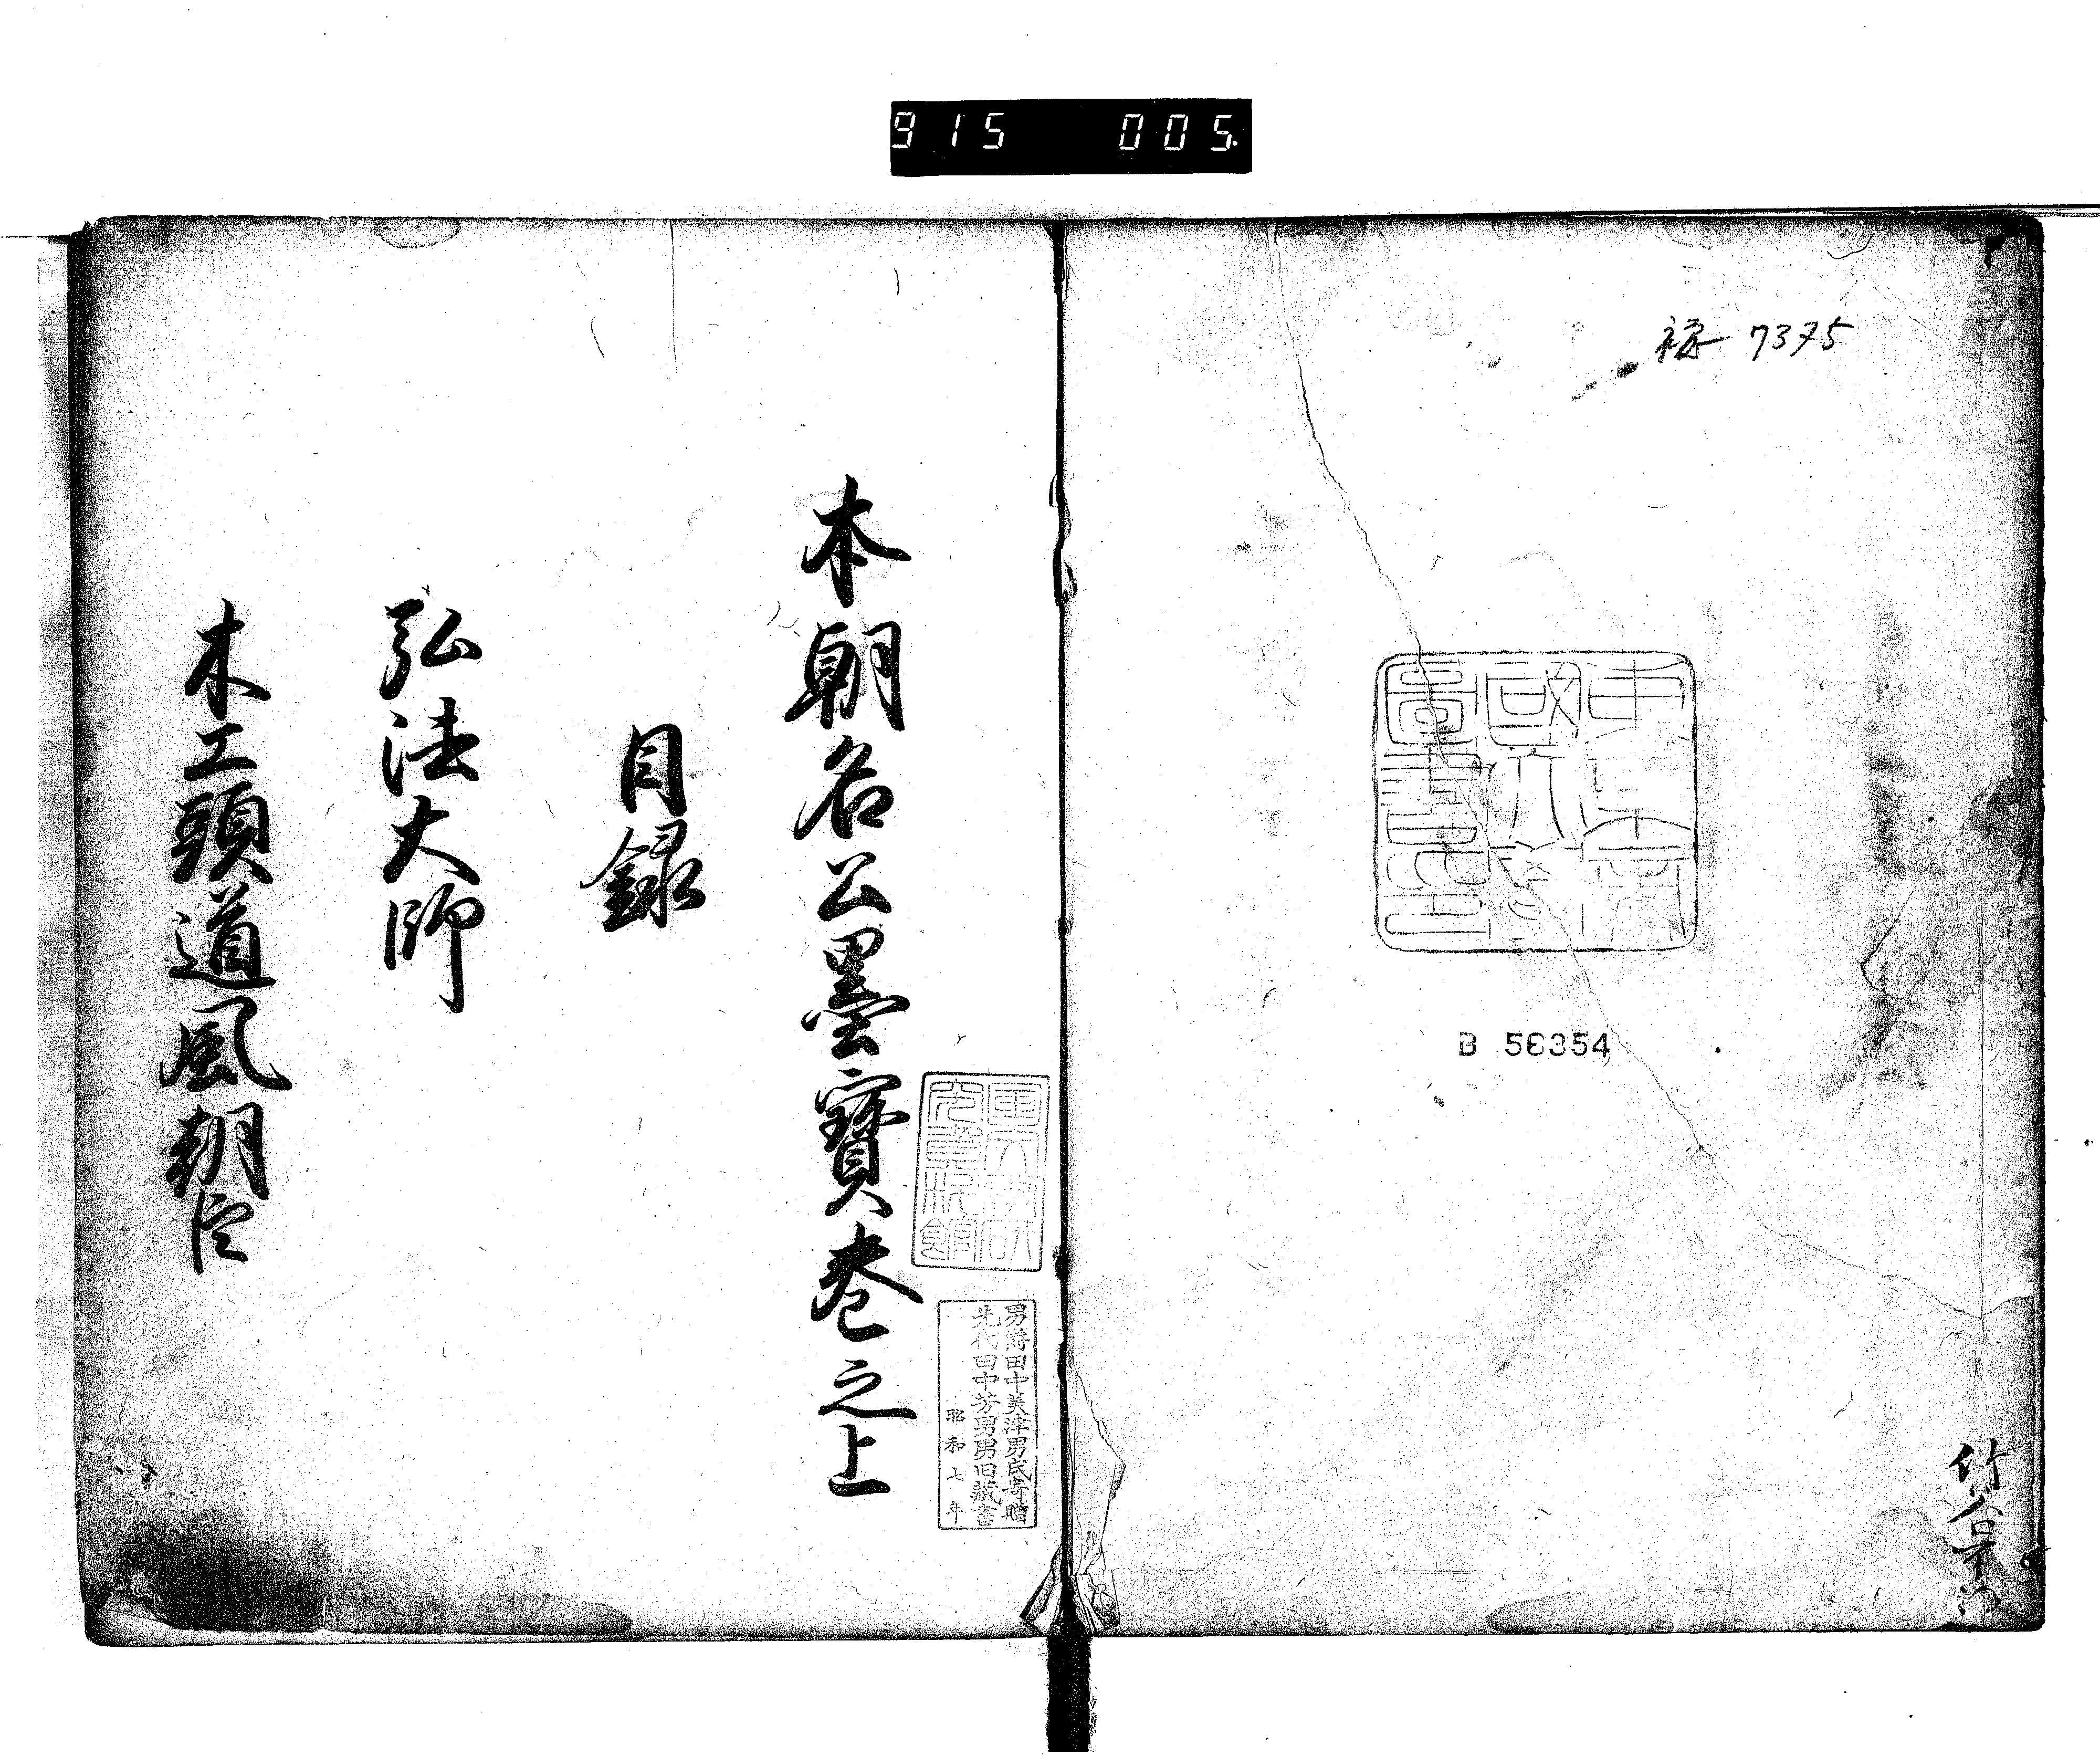 915 005.
禄 7375
東京帝國大學圖書印
B 56354
本朝名公墨寶巻之上
男爵田中美津男氏寄贈
先代田中芳男男旧蔵書
昭和七年
目録
弘法大師
木工頭道風朝臣